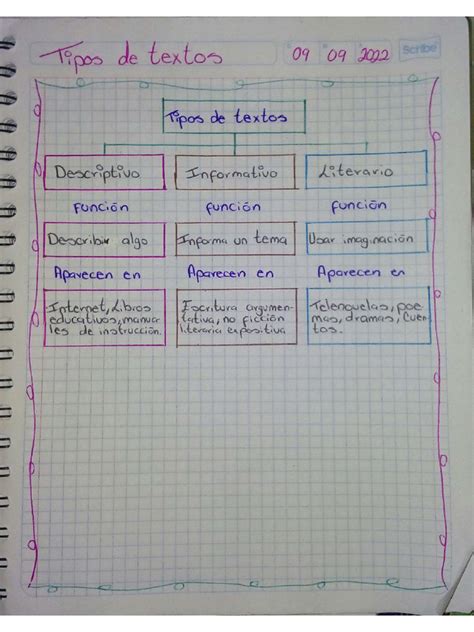 Tipos de textos 09 09 2022 Scribe
Tipos de textos
Descriptivo Informativo Literario
función función función
Describir algo Informa un tema Usar imaginación
Aparecen en Aparecen en Aparecen en
Internet, Libros Escritura argumen- Telenovelas, poe
educativos, manua tativa, no ficción mas, dramas, Cuen
les de instrucción. literaria expositiva tos.